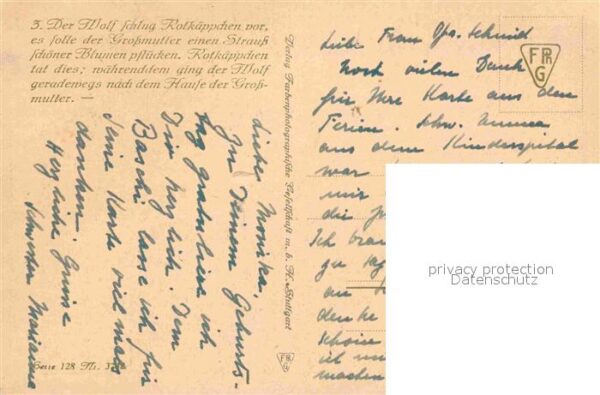 3. Der Wolf schlug Rotkäppchen vor,
es solle der Großmutter einen Strauß
schöner Blumen pflücken. Rotkäppchen
tat dies; währenddem ging der Wolf
geradewegs nach dem Hause der Groß-
mutter. —
Liebes Monika,
Zu Deinem Geburts-
tag gratuliere ich
Dir herzlich. Dem
Baschi lasse ich für
seine Karte vielmals
danken.
Herzliche Grüsse
Schwester Marianne
Serie 128 Nr.
Verlag Farbenphotographische Gesellschaft m. b. H. Stuttgart
FPhG
Liebe Frau Schmid
Noch vielen Dank
für Ihre Karte aus den
Ferien. Schw. Emma
aus dem Kinderspital
war
mir
die
Ich
zu
an
denke
machen
privacy protection
Datenschutz